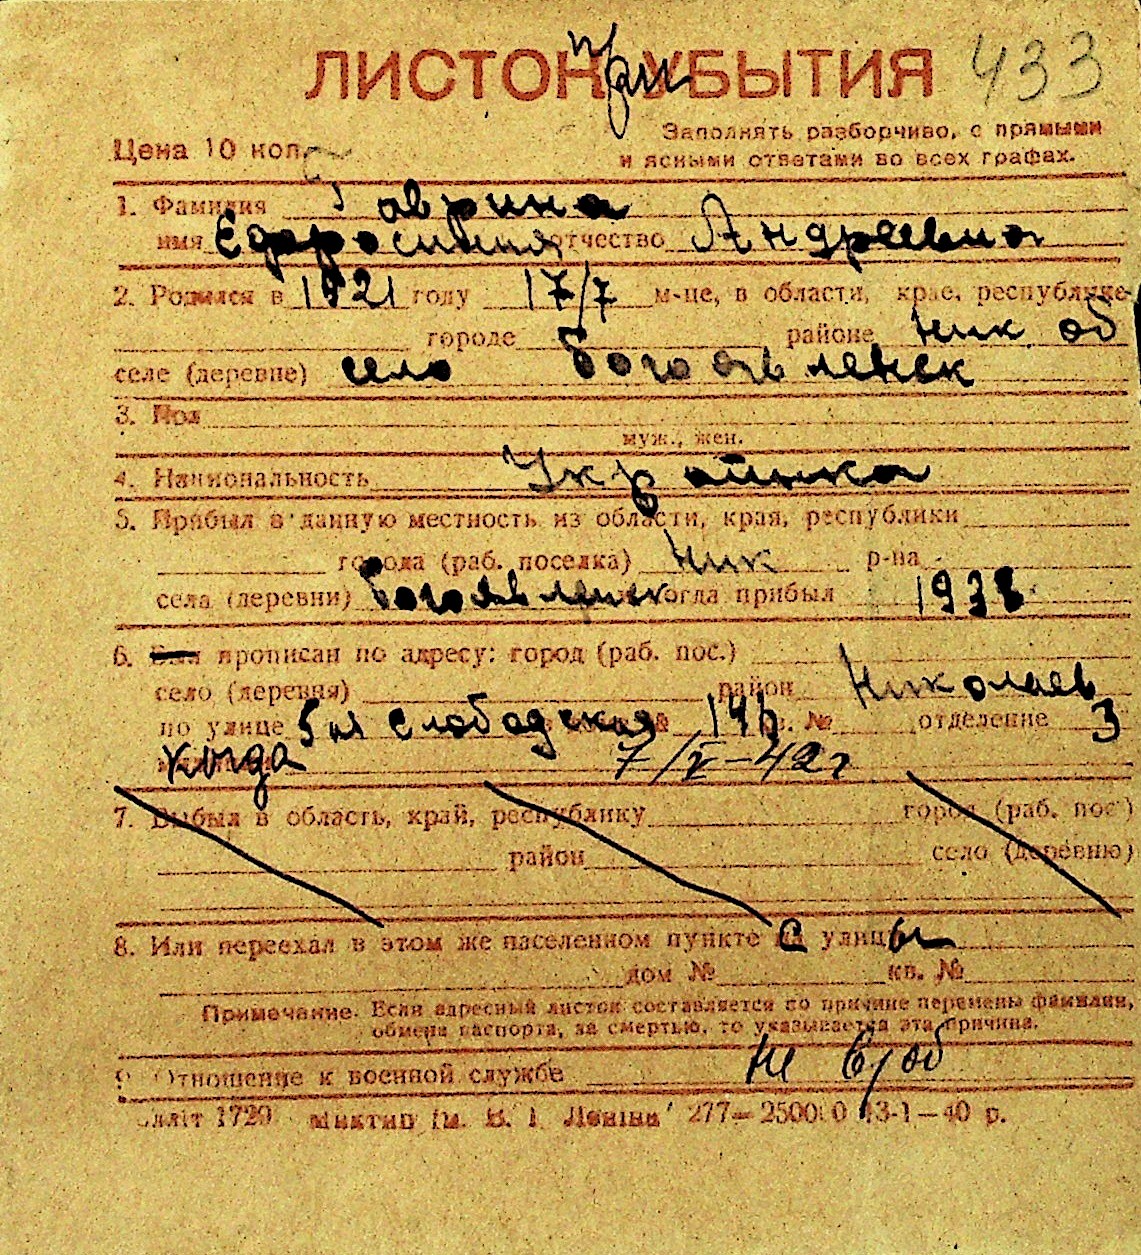 ЛИСТОК при УБЫТИЯ 433
Цена 10 коп.
Заполнять разборчиво, с прямыми
и ясными ответами во всех графах.
1. Фамилия Гаврина
имя Ефросиния отчество Андреевна
2. Родился в 1921 году 17/7 м-це, в области, крае, республике
городе районе Ник об
селе (деревне) село Богоявленск
3. Пол
муж., жен.
4. Национальность Украинка
5. Прибыл в данную местность из области, края, республики
города (раб. поселка) Ник р-на
села (деревни) Богоявленск когда прибыл 1938
6. прописан по адресу: город (раб. пос.)
село (деревня) район Николаев
по улице 5 я Слободская № кв. № отделение 3
7/V-42 г
7. Выбыл в область, край, республику город (раб. пос.)
район село (деревню)
8. Или переехал в этом же населенном пункте с улицы
дом № кв. №
Примечание. Если адресный листок составляется по причине перемены фамилии,
обмена паспорта, за смертью, то указывается эта причина.
9. Отношение к военной службе не в/об
1720 ім. В. І. Леніна 277— 13-1—40 р.